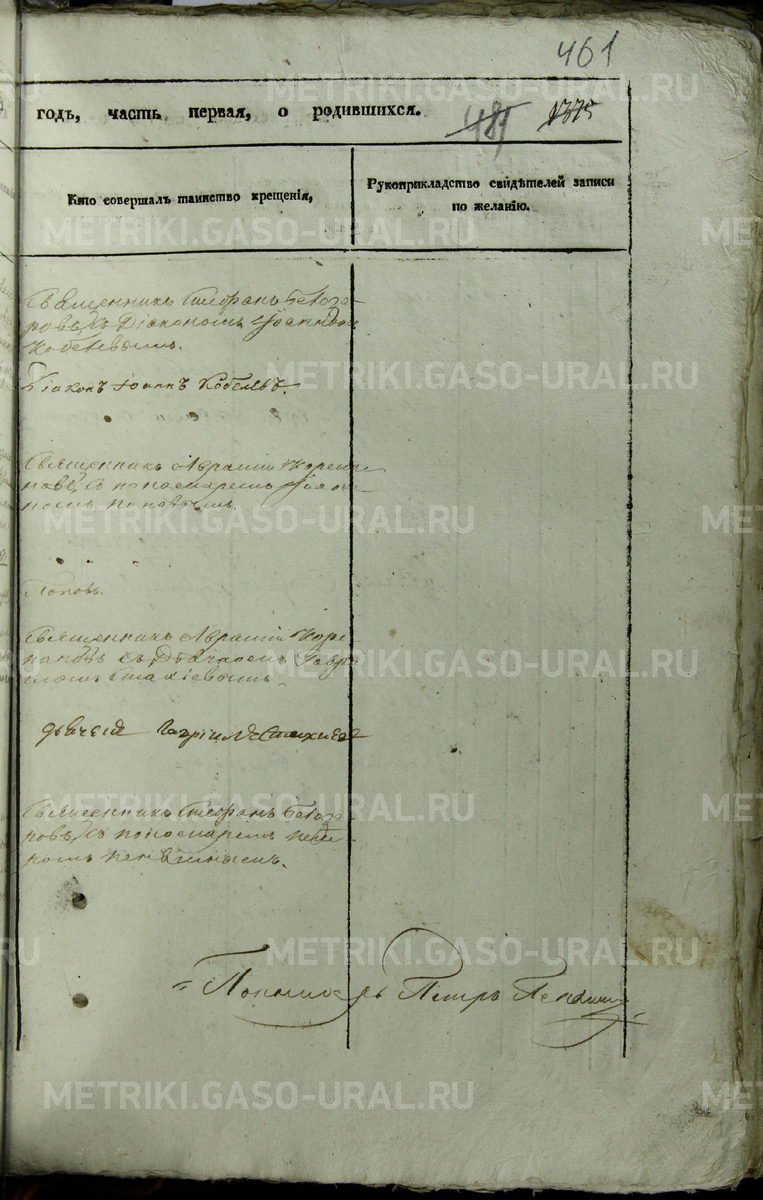 461
годъ, часть первая, о родившихся. 481 1375
Кто совершалъ таинство крещенія,
Рукоприкладство свидѣтелей записи
по желанію.
Священникъ Стефанъ Белозе-
ровъ, съ Діакономъ Іоанномъ
Кобелевымъ.
Діаконъ Іоаннъ
Священникъ Аврамій
съ пономаремъ
Поповымъ.
Поповъ.
Священникъ Аврамій
съ Дьячкомъ Гаврі
иломъ Стахіевымъ.
дьячекъ Гавріилъ Стахіевъ
Священникъ Стефанъ Белозе-
ровъ, съ пономаремъ Пет-
ромъ
Пономарь Петръ
METRIKI.GASO-URAL.RU